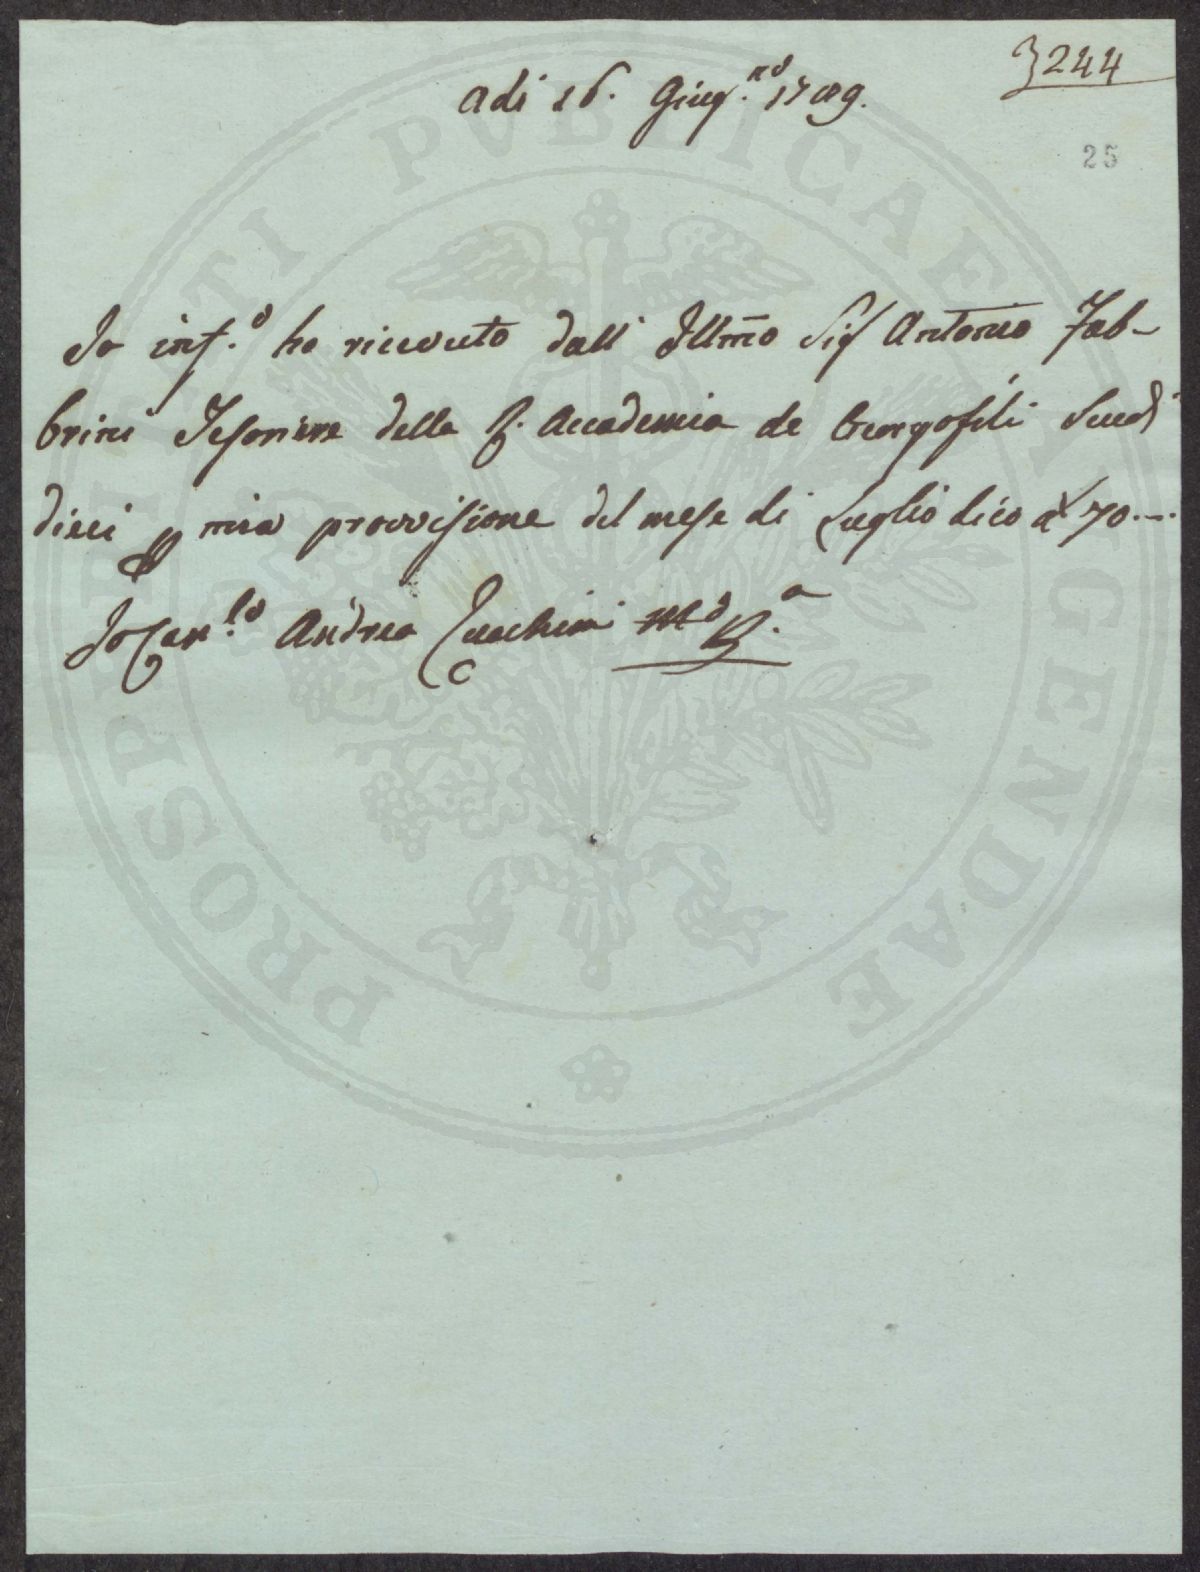 3244
Adi 16. Giug.no 1789.
25
Io inf.o ho ricevuto dall' Illmo Sig Antonio Fab-
brini Tesoriere della R. Accademia de Georgofili Scudi
dieci p mia provvisione del mese di Luglio dico a 70.--
Io Can.co Andrea Zucchini Mo Pa
PROSPERITATI PVBLICAE AVGENDAE